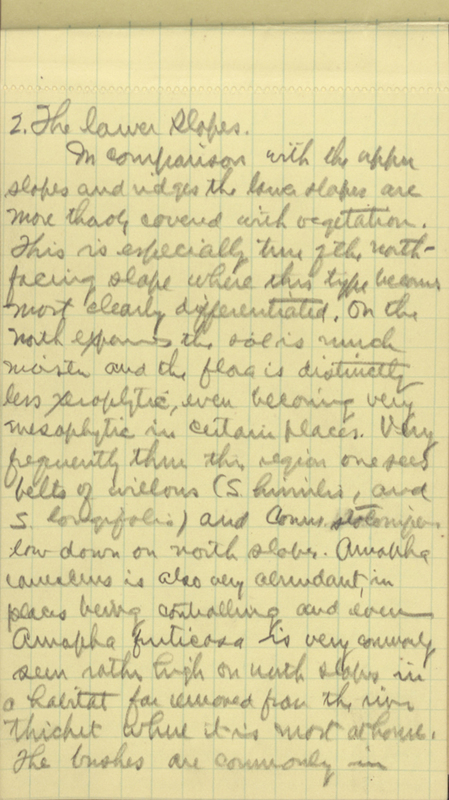 2. The lower Slopes.
In comparison with the upper
slopes and ridges the lower slopes are
more thickly covered with vegetation.
This is especially true of the north-
facing slope where this type becomes
most clearly differentiated. On the
north exposures the soil is much
moister and the flora is distinctly
less xerophytic, even becoming very
mesophytic in certain places. Very
frequently thru this region one sees
belts of willows (S. humilis, and
S. longifolia) and Cornus stolonifera
low down on north slopes. Amorpha
canescens is also very abundant, in
places being controlling and even
Amorpha fruticosa is very commonly
seen rather high on north slopes in
a habitat far removed from the river
thicket where it is most at home.
The bushes are commonly in